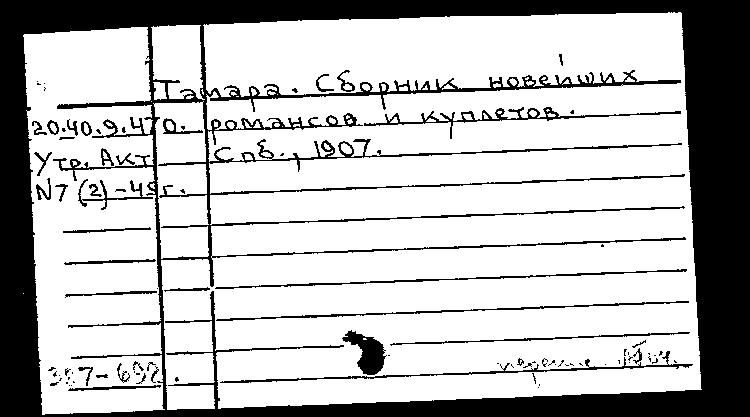 Тамара. Сборник новейших
20.40.9.470. романсов и куплетов.
Утр. Акт Спб., 1907.
N7 (2)-49г.